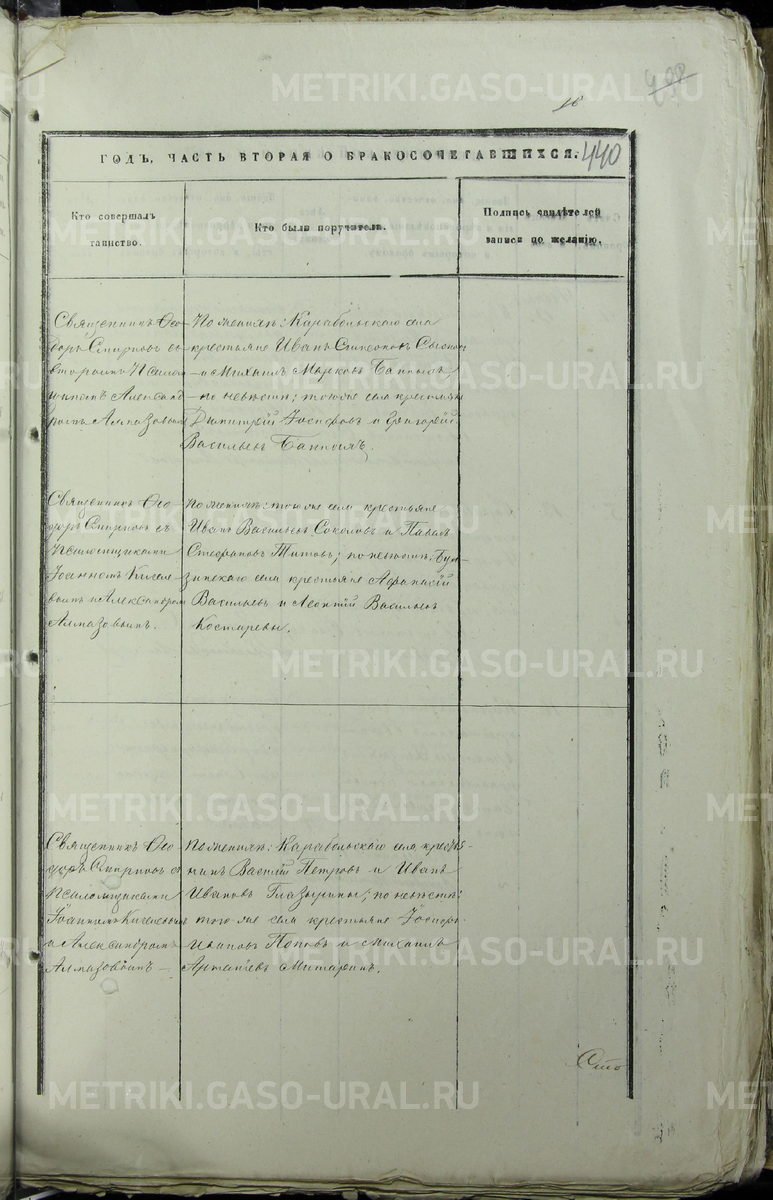 440
ГОДЪ, ЧАСТЬ ВТОРАЯ О БРАКОСОЧЕТАВШИХСЯ.
Кто совершалъ
таинство.
Кто были поручители.
Подпись свидѣтелей
записи по желанію.
Священникъ Ѳео-
доръ Смирновъ со
вторымъ Псалом-
щикомъ Александ-
ромъ Алмазовымъ
По женихѣ: Карабольскаго села
крестьяне Иванъ Симеоновъ
и Михаилъ Марковъ
по невѣстѣ; тогоже села крестьяне
Димитрій Іосифовъ и Григорій
Васильевъ
Священникъ Ѳео-
доръ Смирновъ съ
Псаломщиками
Іоанномъ Киселе-
вымъ и Александромъ
Алмазовымъ.
По женихѣ: тогоже села крестьяне
Иванъ Васильевъ Соколовъ и Павелъ
Стефановъ Титовъ; по невѣстѣ: Бул-
зинскаго села крестьяне Афанасій
Васильевъ и Леонтій Васильевъ
Костаревы.
Священникъ Ѳео-
доръ Смирновъ съ
Псаломщиками
Іоанномъ Киселевымъ
и Александромъ
Алмазовымъ
По женихѣ: Карабольскаго села кресть-
Василій Петровъ и Иванъ
Ивановъ Глазырины; по невѣстѣ:
тогоже села крестьяне Іосифъ
Ивановъ Поповъ и Михаилъ
METRIKI.GASO-URAL.RU